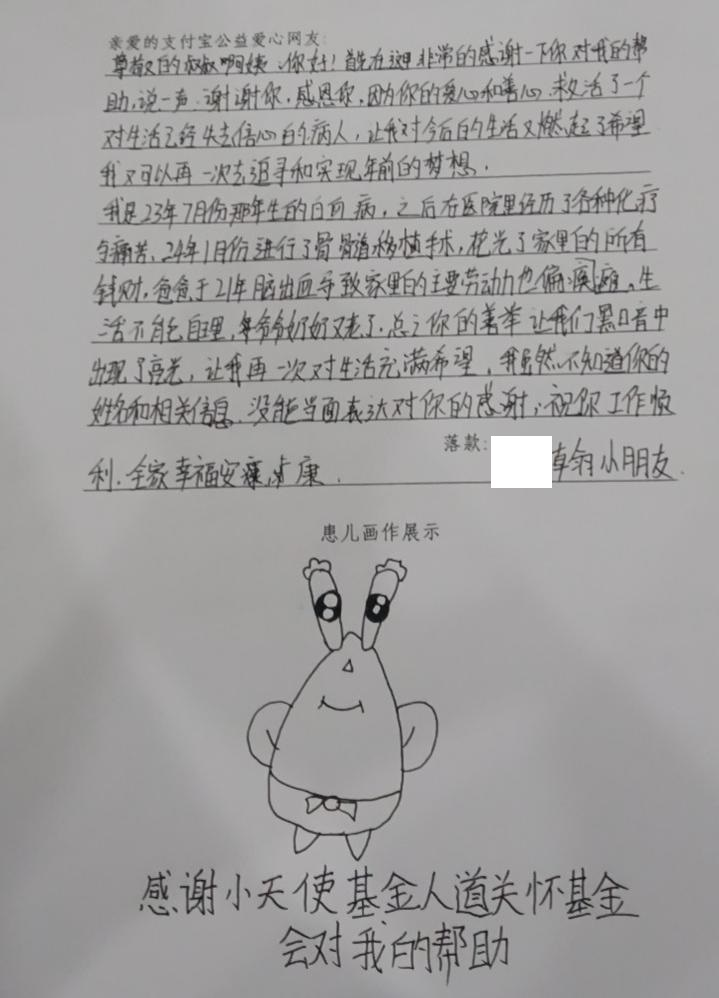 亲爱的支付宝公益爱心网友:
尊敬的叔叔啊姨，你好！首先在这里非常的感谢一下你对我的帮
助，说一声.谢谢你，感恩你，因为你的爱心和善心.救活了一个
对生活已经失去信心的病人，让我对今后的生活又燃起了希望
我又可以再一次去追寻和实现年前的梦想.
我是23年7月份那年生的白血病，之后在医院里经历了各种化疗
与痛苦.24年1月份进行了骨髓移植手术，花光了家里的所有
钱财，爸爸于21年脑出血导致家里的主要劳动力也偏瘫.生
活不能自理，爷爷奶奶又老了.总之你的善举让我们黑暗中
出现了亮光，让我再一次对生活充满希望，我虽然不知道你的
姓名和相关信息.没能当面表达对你的感谢，祝你工作顺
落款:
小朋友.
利.全家幸福安康.
患儿画作展示
感谢小天使基金人道关怀基金
会对我的帮助